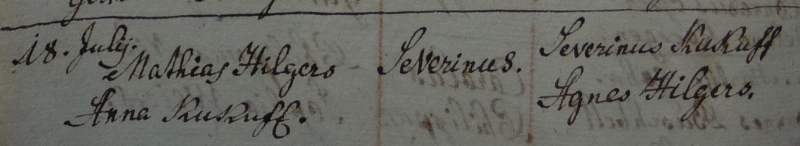 18. Julij.
Mathias Hilgers
Anna KuKuff.
Severinus.
Severinus KuKuff
Agnes Hilgers.